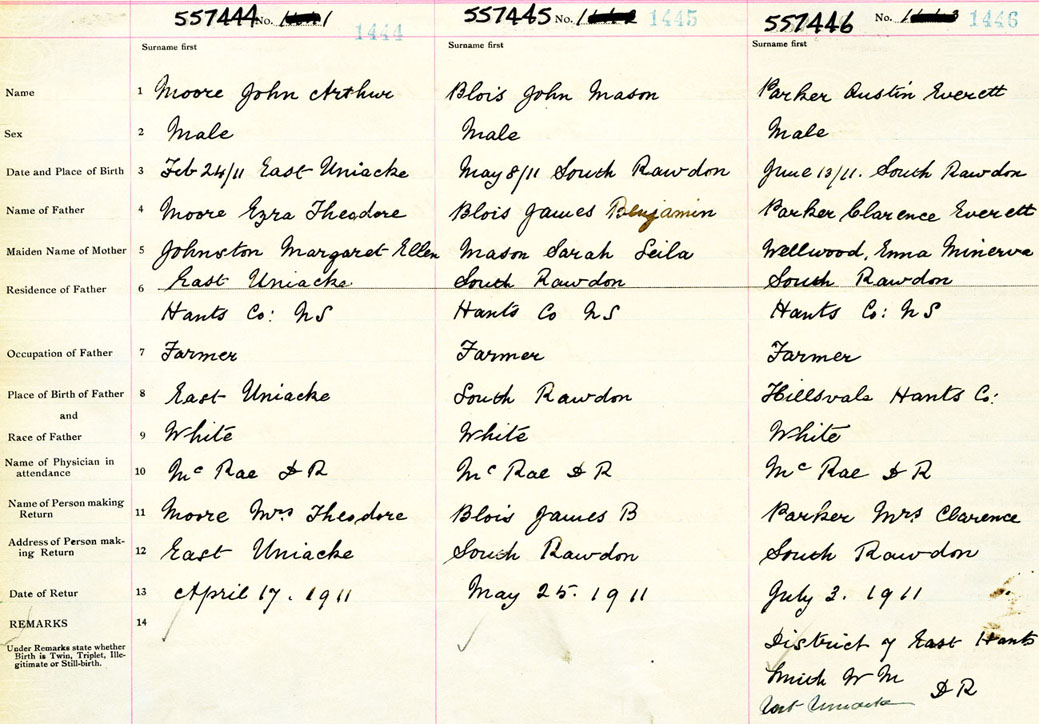 557444 No. 1444
557445 No. 1445
557446 No. 1446
Surname first Surname first Surname first
Name 1 Moore John Arthur Blois John Mason Parker Austin Everett
Sex 2 Male Male Male
Date and Place of Birth 3 Feb 24/11 East Uniacke May 8/11 South Rawdon June 13/11. South Rawdon
Name of Father 4 Moore Ezra Theodore Blois James Benjamin Parker Clarence Everett
Maiden Name of Mother 5 Johnston Margaret Ellen Mason Sarah Leila Wellwood, Emma Minerva
Residence of Father 6 East Uniacke South Rawdon South Rawdon
Hants Co: NS Hants Co NS Hants Co: NS
Occupation of Father 7 Farmer Farmer Farmer
Place of Birth of Father 8 East Uniacke South Rawdon Hillsvale Hants Co:
and
Race of Father 9 White White White
Name of Physician in
attendance 10 McRae DR McRae DR McRae DR
Name of Person making
Return 11 Moore Mrs Theodore Blois James B Parker Mrs Clarence
Address of Person mak-
ing Return 12 East Uniacke South Rawdon South Rawdon
Date of Retur 13 April 17. 1911 May 25. 1911 July 3. 1911
REMARKS 14
Under Remarks state whether
Birth is Twin, Triplet, Ille-
gitimate or Still-birth.
District of East Hants
Smith W M
DR
Uniacke